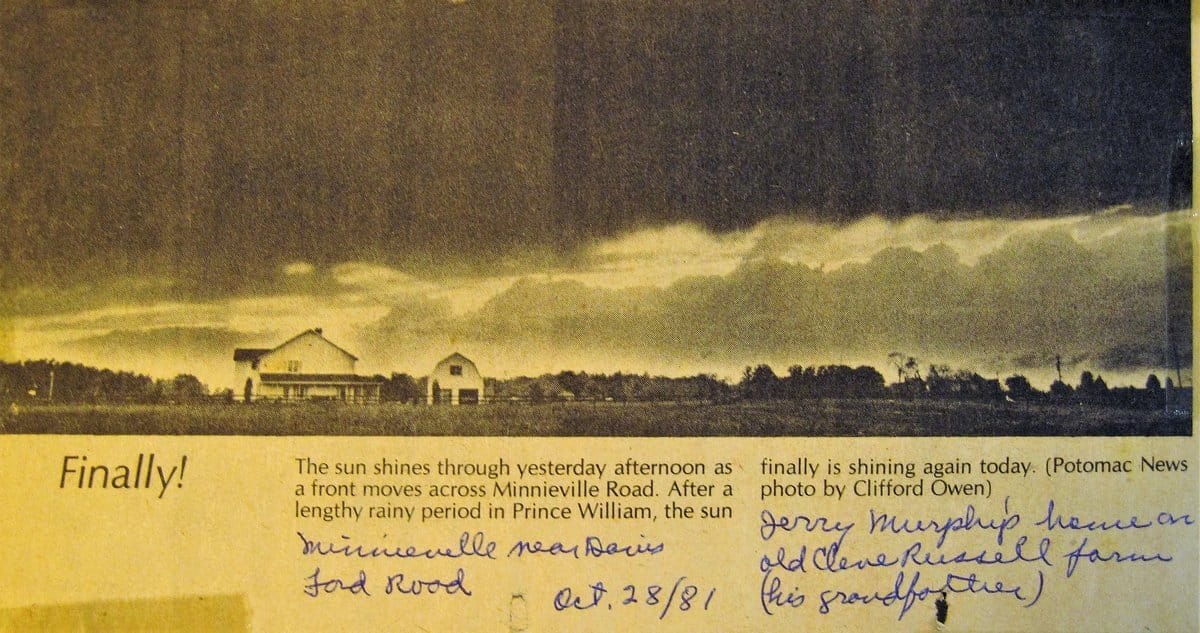 Finally!
The sun shines through yesterday afternoon as
a front moves across Minnieville Road. After a
lengthy rainy period in Prince William, the sun
finally is shining again today. (Potomac News
photo by Clifford Owen)
Minnieville near Davis
Ford Road
Oct. 28/81
Jerry Murphy's home on
old Cleve Russell farm
(his grandfather)